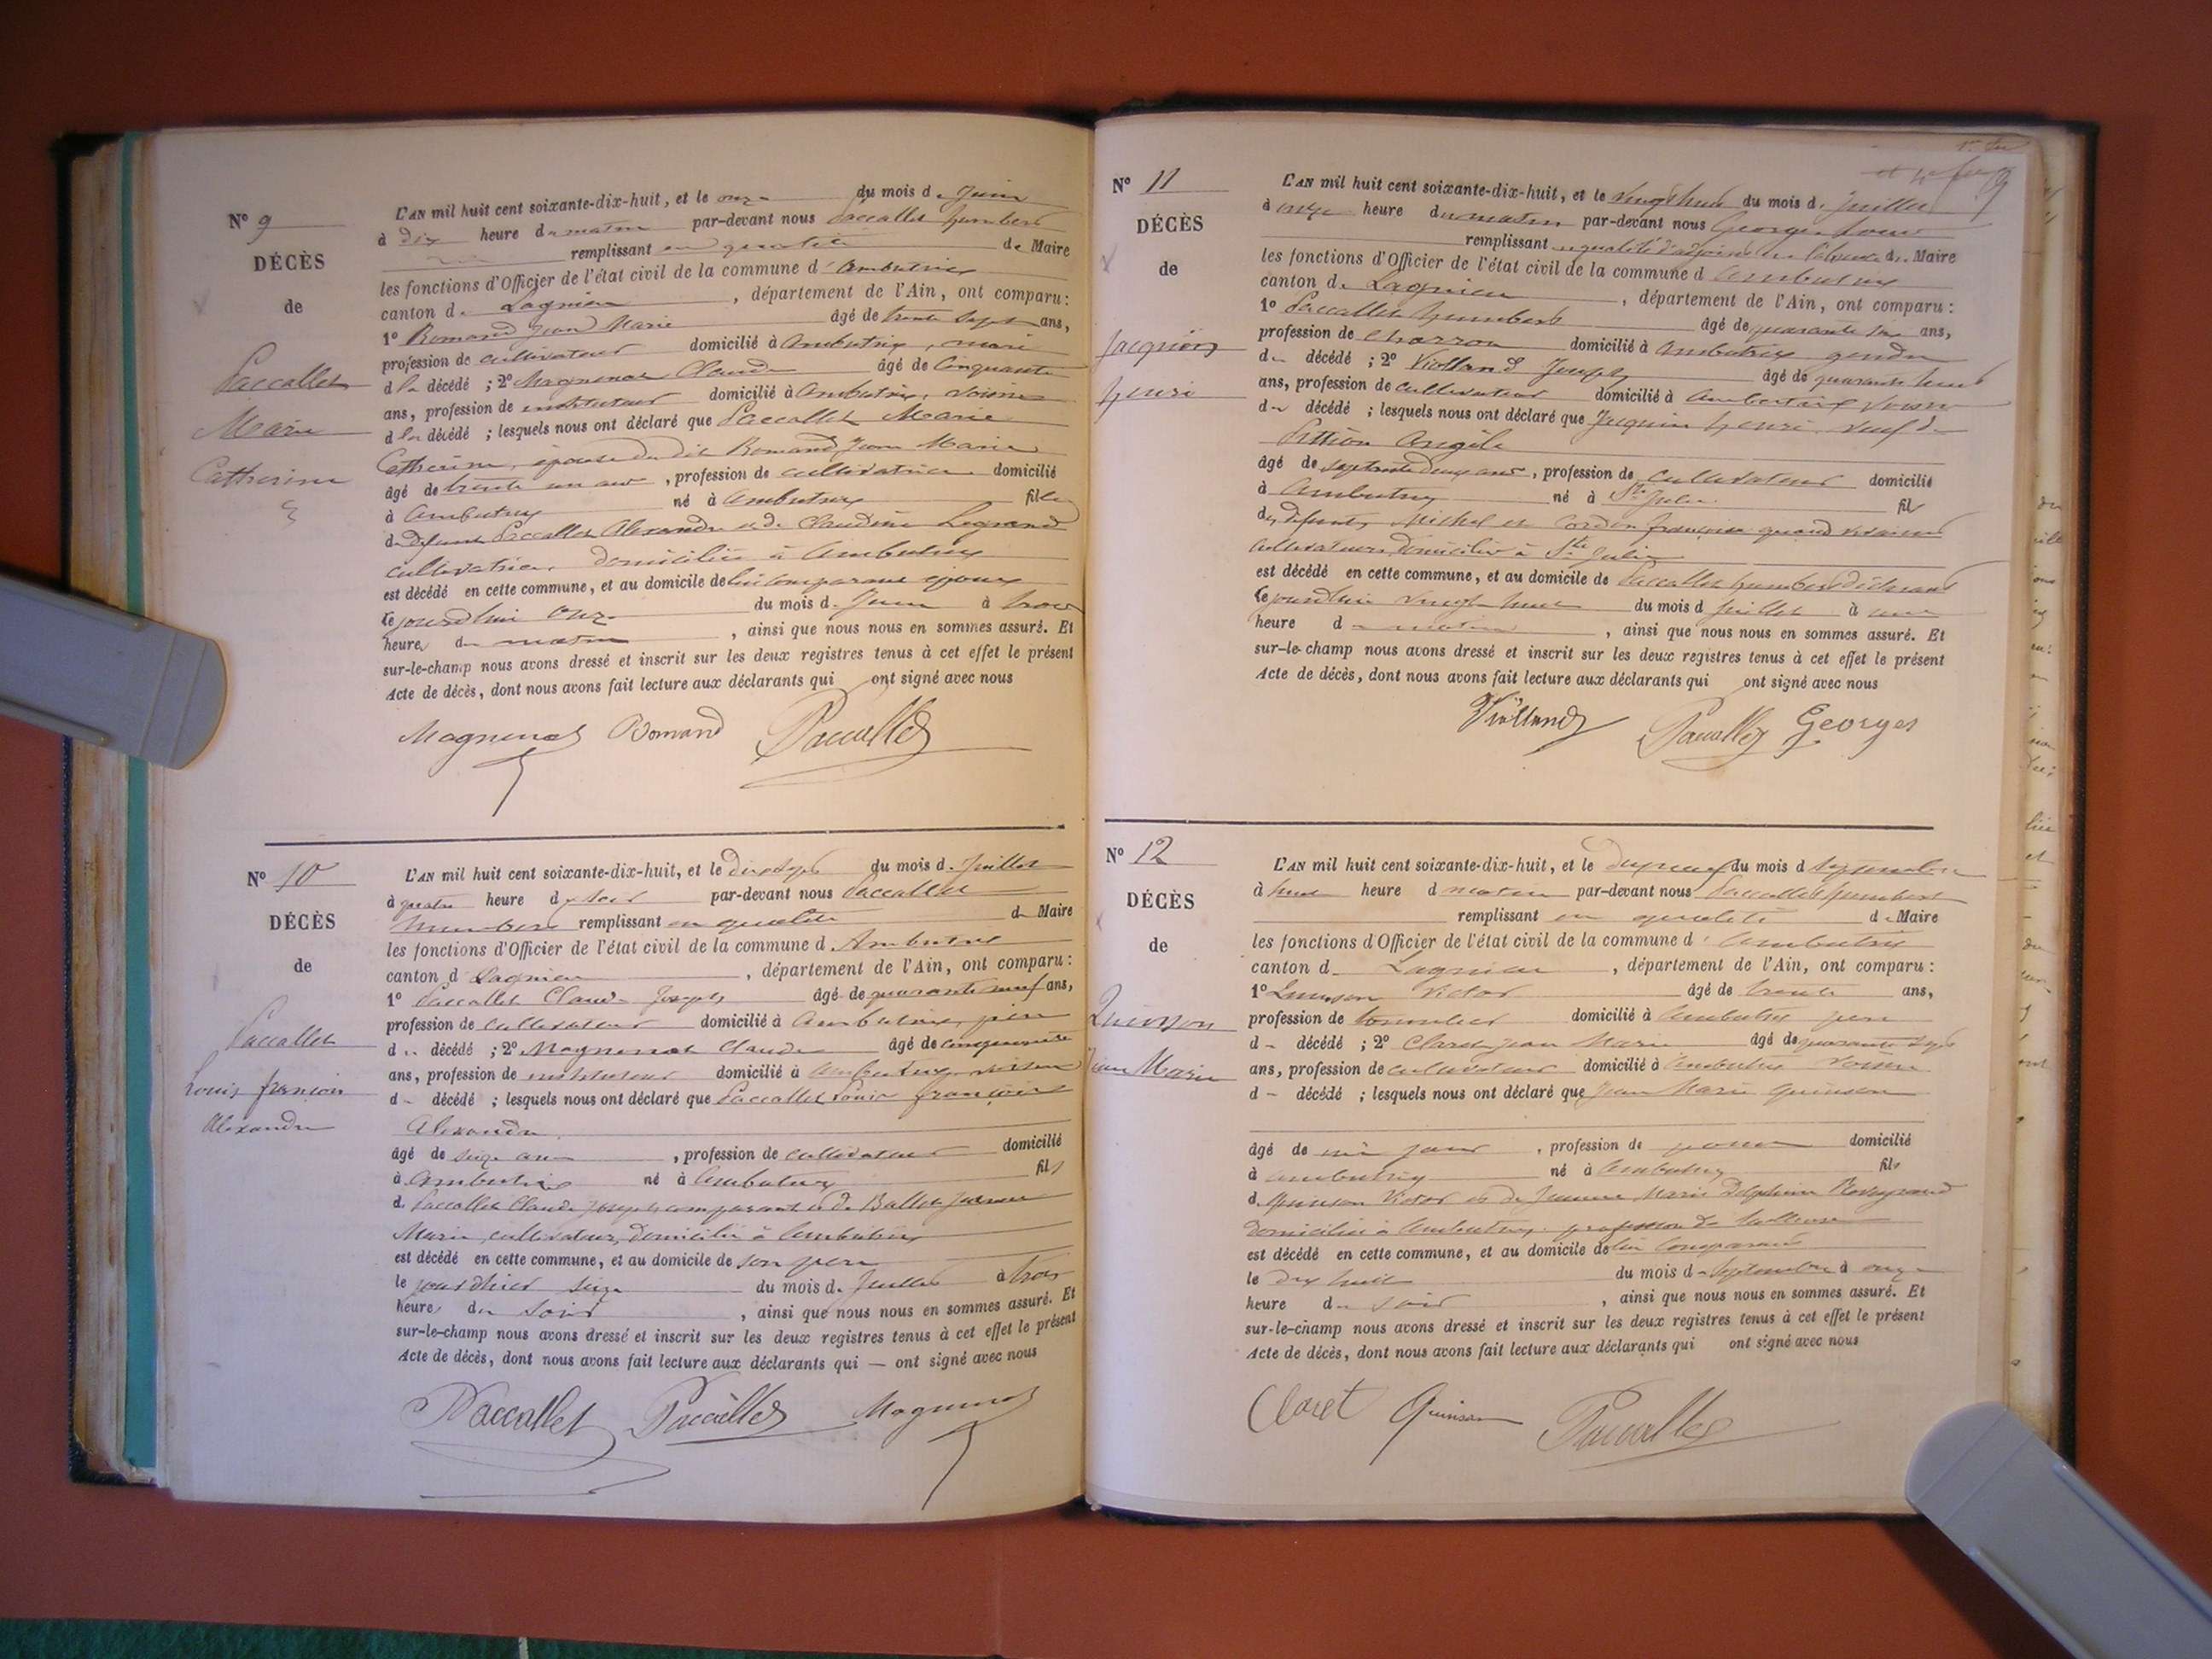 N° 9
DÉCÈS
de
Paccallet
Marie
Catherine
L'AN mil huit cent soixante-dix-huit, et le onze du mois de Juin
à dix heure du matin par-devant nous Paccallet humbert
remplissant en qualité de Maire
les fonctions d'Officier de l'état civil de la commune d'Ambutrix
canton de Lagnieu, département de l'Ain, ont comparu:
1° Romand Jean Marie âgé de trente sept ans,
profession de cultivateur domicilié à Ambutrix, mari
d la décédé ; 2° Magnenot Claude âgé de Cinquante
ans, profession de instituteur domicilié à Ambutrix, voisin
d la décédé ; lesquels nous ont déclaré que Paccallet Marie
Catherine, épouse du dit Romand Jean Marie
âgé de trente un ans, profession de cultivatrice domicilié
à Ambutrix né à Ambutrix fille
de défunt Paccallet Alexandre et de Claudine Legrand
cultivatrice domiciliée à Ambutrix
est décédé en cette commune, et au domicile de lui comparant époux
le jourd'hui onze du mois de Juin à trois
heures du matin, ainsi que nous nous en sommes assuré. Et
sur-le-champ nous avons dressé et inscrit sur les deux registres tenus à cet effet le présent
Acte de décès, dont nous avons fait lecture aux déclarants qui ont signé avec nous
Magnenot Romand Paccallet
N° 10
DÉCÈS
de
Paccallet
Louis françois
Alexandre
L'AN mil huit cent soixante-dix-huit, et le dix sept du mois de Juillet
à quatre heure du soir par-devant nous Paccallet
humbert remplissant en qualité de Maire
les fonctions d'Officier de l'état civil de la commune d Ambutrix
canton d Lagnieu, département de l'Ain, ont comparu:
1° Paccallet Claude Joseph âgé de quarante neuf ans,
profession de cultivateur domicilié à Ambutrix, père
du décédé ; 2° Magnenot Claude âgé de cinquante
ans, profession de instituteur domicilié à Ambutrix voisin
du décédé ; lesquels nous ont déclaré que Paccallet Louis françois
Alexandre
âgé de seize ans, profession de cultivateur domicilié
à Ambutrix né à Ambutrix fils
d Paccallet Claude Joseph comparant et de Ballet Jeanne
Marie, cultivateurs, domiciliés à Ambutrix
est décédé en cette commune, et au domicile de son père
le jour d'hier seize du mois de Juillet à trois
heures du soir, ainsi que nous nous en sommes assuré. Et
sur-le-champ nous avons dressé et inscrit sur les deux registres tenus à cet effet le présent
Acte de décès, dont nous avons fait lecture aux déclarants qui — ont signé avec nous
Paccallet Paccallet Magnenot
N° 11
DÉCÈS
de
Jacquin
henri
L'AN mil huit cent soixante-dix-huit, et le vingt huit du mois de Juillet
à onze heure du matin par-devant nous Georges Louis
remplissant en qualité d'adjoint en l'absence du Maire
les fonctions d'Officier de l'état civil de la commune d Ambutrix
canton de Lagnieu, département de l'Ain, ont comparu:
1° Paccallet humbert âgé de quarante six ans,
profession de charron domicilié à Ambutrix gendre
du décédé ; 2° Violland Joseph âgé de quarante huit
ans, profession de cultivateur domicilié à Ambutrix voisin
du décédé ; lesquels nous ont déclaré que Jacquin henri veuf de
Pittion Angèle
âgé de septante deux ans, profession de Cultivateur domicilié
à Ambutrix né à Ste Julie fil
des défunts Michel et Cordon françoise quand vivaient
cultivateurs domiciliés à Ste Julie
est décédé en cette commune, et au domicile de Paccallet humbert déclarant
le jourd'hui vingt huit du mois d Juillet à une
heure du matin, ainsi que nous nous en sommes assuré. Et
sur-le-champ nous avons dressé et inscrit sur les deux registres tenus à cet effet le présent
Acte de décès, dont nous avons fait lecture aux déclarants qui ont signé avec nous
Violland Paccallet Georges
N° 12
DÉCÈS
de
Quinson
Jean Marie
L'AN mil huit cent soixante-dix-huit, et le dix neuf du mois d Septembre
à huit heure d matin par-devant nous Paccallet humbert
remplissant en qualité de Maire
les fonctions d'Officier de l'état civil de la commune d'Ambutrix
canton de Lagnieu, département de l'Ain, ont comparu:
1° Quinson Victor âgé de trente ans,
profession de tonnelier domicilié à Ambutrix père
du décédé ; 2° Claret Jean Marie âgé de quarante sept
ans, profession de cultivateur domicilié à Ambutrix voisin
du décédé ; lesquels nous ont déclaré que Jean Marie Quinson
âgé de un jour, profession de domicilié
à Ambutrix né à Ambutrix fils
d Quinson Victor et de Jeanne Marie Delphine
domiciliés à Ambutrix, profession de tailleuse
est décédé en cette commune, et au domicile de lui Comparant
le dix huit du mois de Septembre à onze
heure du soir, ainsi que nous nous en sommes assuré. Et
sur-le-champ nous avons dressé et inscrit sur les deux registres tenus à cet effet le présent
Acte de décès, dont nous avons fait lecture aux déclarants qui ont signé avec nous
Claret Quinson Paccallet